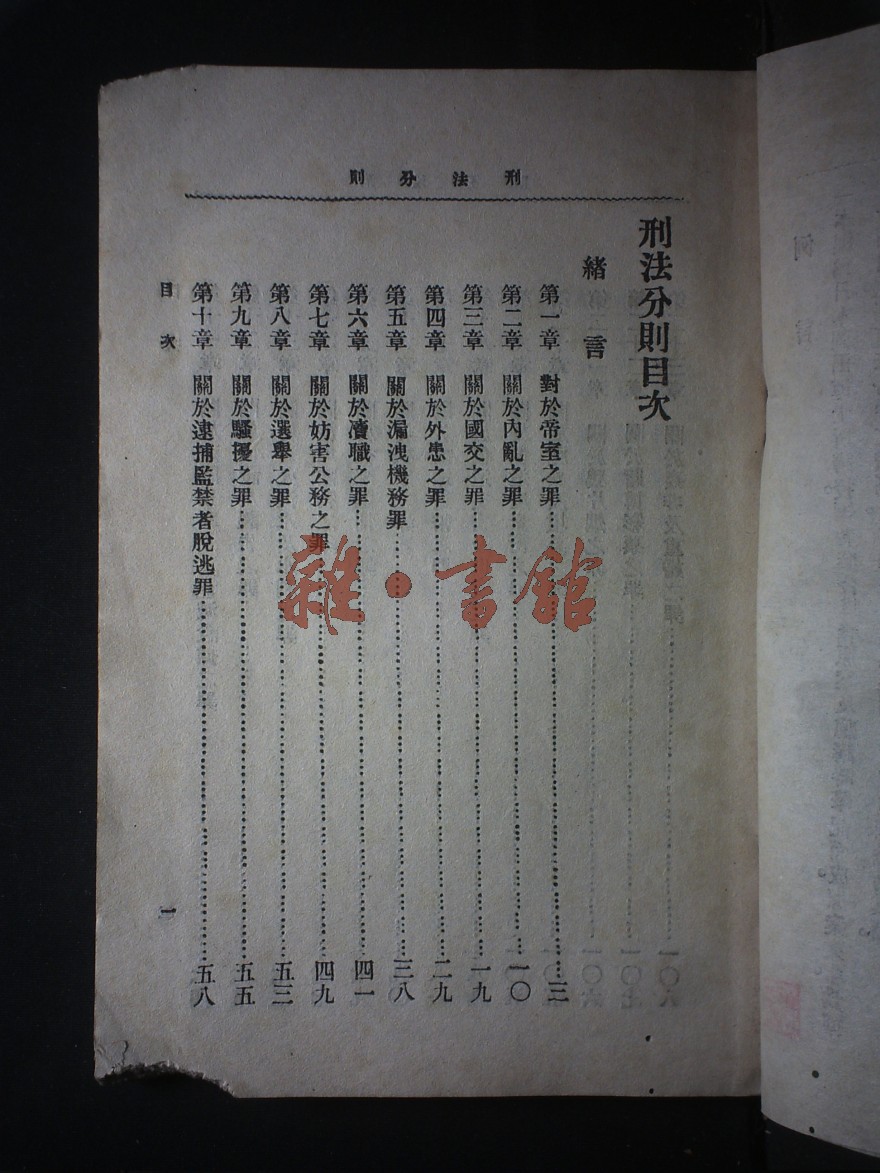 刑法分則
刑法分則目次
緒言
第一章 對於帝室之罪……三
第二章 關於內亂之罪……一〇
第三章 關於國交之罪……一九
第四章 關於外患之罪……二九
第五章 關於漏洩機務罪……三八
第六章 關於瀆職之罪……四一
第七章 關於妨害公務之罪……四九
第八章 關於選舉之罪……五三
第九章 關於騷擾之罪……五五
第十章 關於逮捕監禁者脫逃罪……五八
目次
一
雜·書館